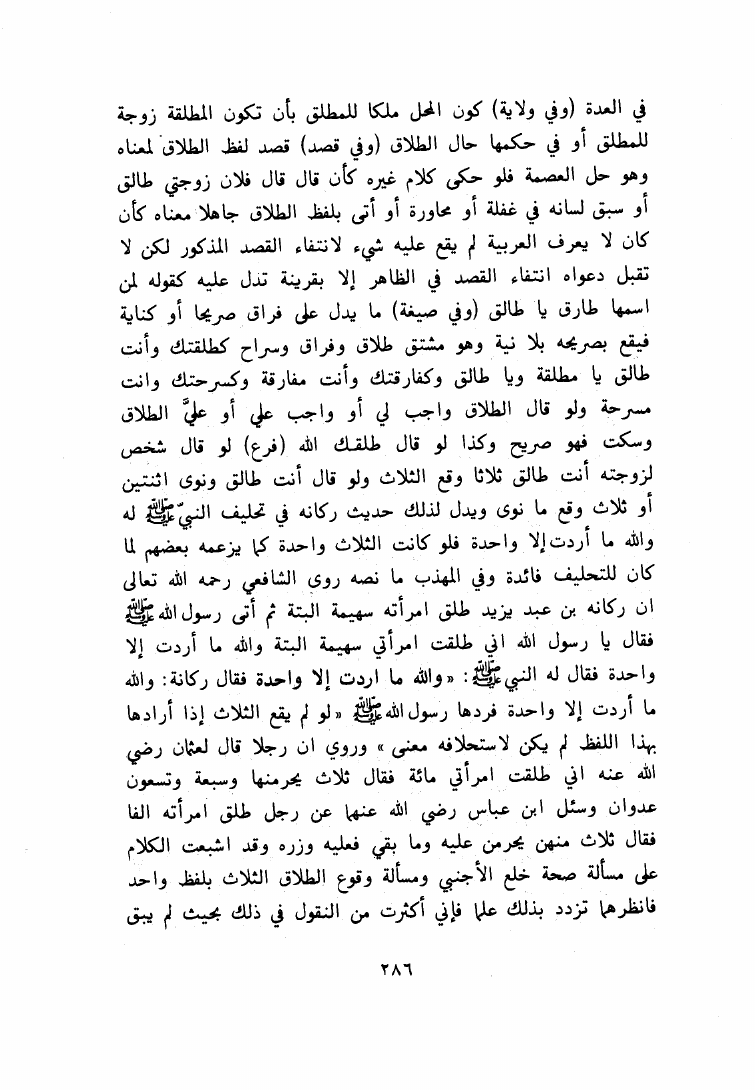 في العدة (وفي ولاية) كون المحل ملكا للمطلق بأن تكون المطلقة زوجة
للمطلق أو في حكمها حال الطلاق (وفي قصد) قصد لفظ الطلاق لمعناه
وهو حل العصمة فلو حكى كلام غيره كأن قال قال فلان زوجتي طالق
أو سبق لسانه في غفلة أو محاورة أو أتى بلفظ الطلاق جاهلا معناه كأن
كان لا يعرف العربية لم يقع عليه شيء لانتفاء القصد المذكور لكن لا
تقبل دعواه انتفاء القصد في الظاهر إلا بقرينة تدل عليه كقوله لمن
اسمها طارق يا طالق (وفي صيغة) ما يدل على فراق صريحا أو كناية
فيقع بصريحه بلا نية وهو مشتق طلاق وفراق وسراح كطلقتك وأنت
طالق يا مطلقة ويا طالق وكفارقتك وأنت مفارقة وكسرحتك وانت
مسرحة ولو قال الطلاق واجب لي أو واجب علي أو عليَّ الطلاق
وسكت فهو صريح وكذا لو قال طلقك الله (فرع) لو قال شخص
لزوجته أنت طالق ثلاثا وقع الثلاث ولو قال أنت طالق ونوى اثنتين
أو ثلاث وقع ما نوى ويدل لذلك حديث ركانه في تحليف النبيّ ﷺ له
والله ما أردت إلا واحدة فلو كانت الثلاث واحدة كما يزعمه بعضهم لما
كان للتحليف فائدة وفي المهذب ما نصه روى الشافعي رحمه الله تعالى
ان ركانه بن عبد يزيد طلق امرأته سهيمة البتة ثم أتى رسول الله ﷺ
فقال يا رسول الله اني طلقت امرأتي سهيمة البتة والله ما أردت إلا
واحدة فقال له النبي ﷺ: «والله ما اردت إلا واحدة فقال ركانة: والله
ما أردت إلا واحدة فردها رسول الله ﷺ «لو لم يقع الثلاث إذا أرادها
بهذا اللفظ لم يكن لاستحلافه معنى» وروي ان رجلا قال لعثمان رضي
الله عنه اني طلقت امرأتي مائة فقال ثلاث يحرمنها وسبعة وتسعون
عدوان وسئل ابن عباس رضي الله عنهما عن رجل طلق امرأته الفا
فقال ثلاث منهن يحرمن عليه وما بقي فعليه وزره وقد اشبعت الكلام
على مسألة صحة خلع الأجنبي ومسألة وقوع الطلاق الثلاث بلفظ واحد
فانظرهما تزدد بذلك علما فإني أكثرت من النقول في ذلك بحيث لم يبق
٢٨٦